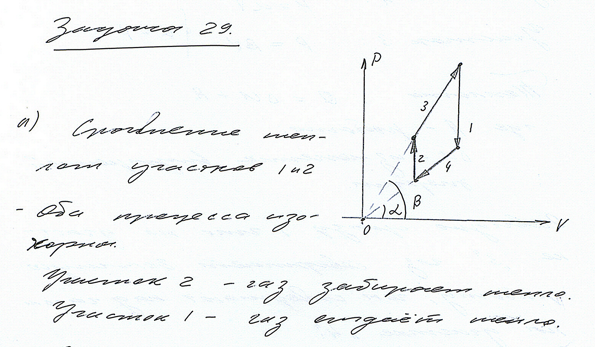 Задача 29.
P
3
1
2
4
β
α
0
V
а) Сравнение теп-
лот участков 1 и 2
- Оба процесса изо-
хорны.
Участок 2 - газ забирает тепло.
Участок 1 - газ отдаёт тепло.